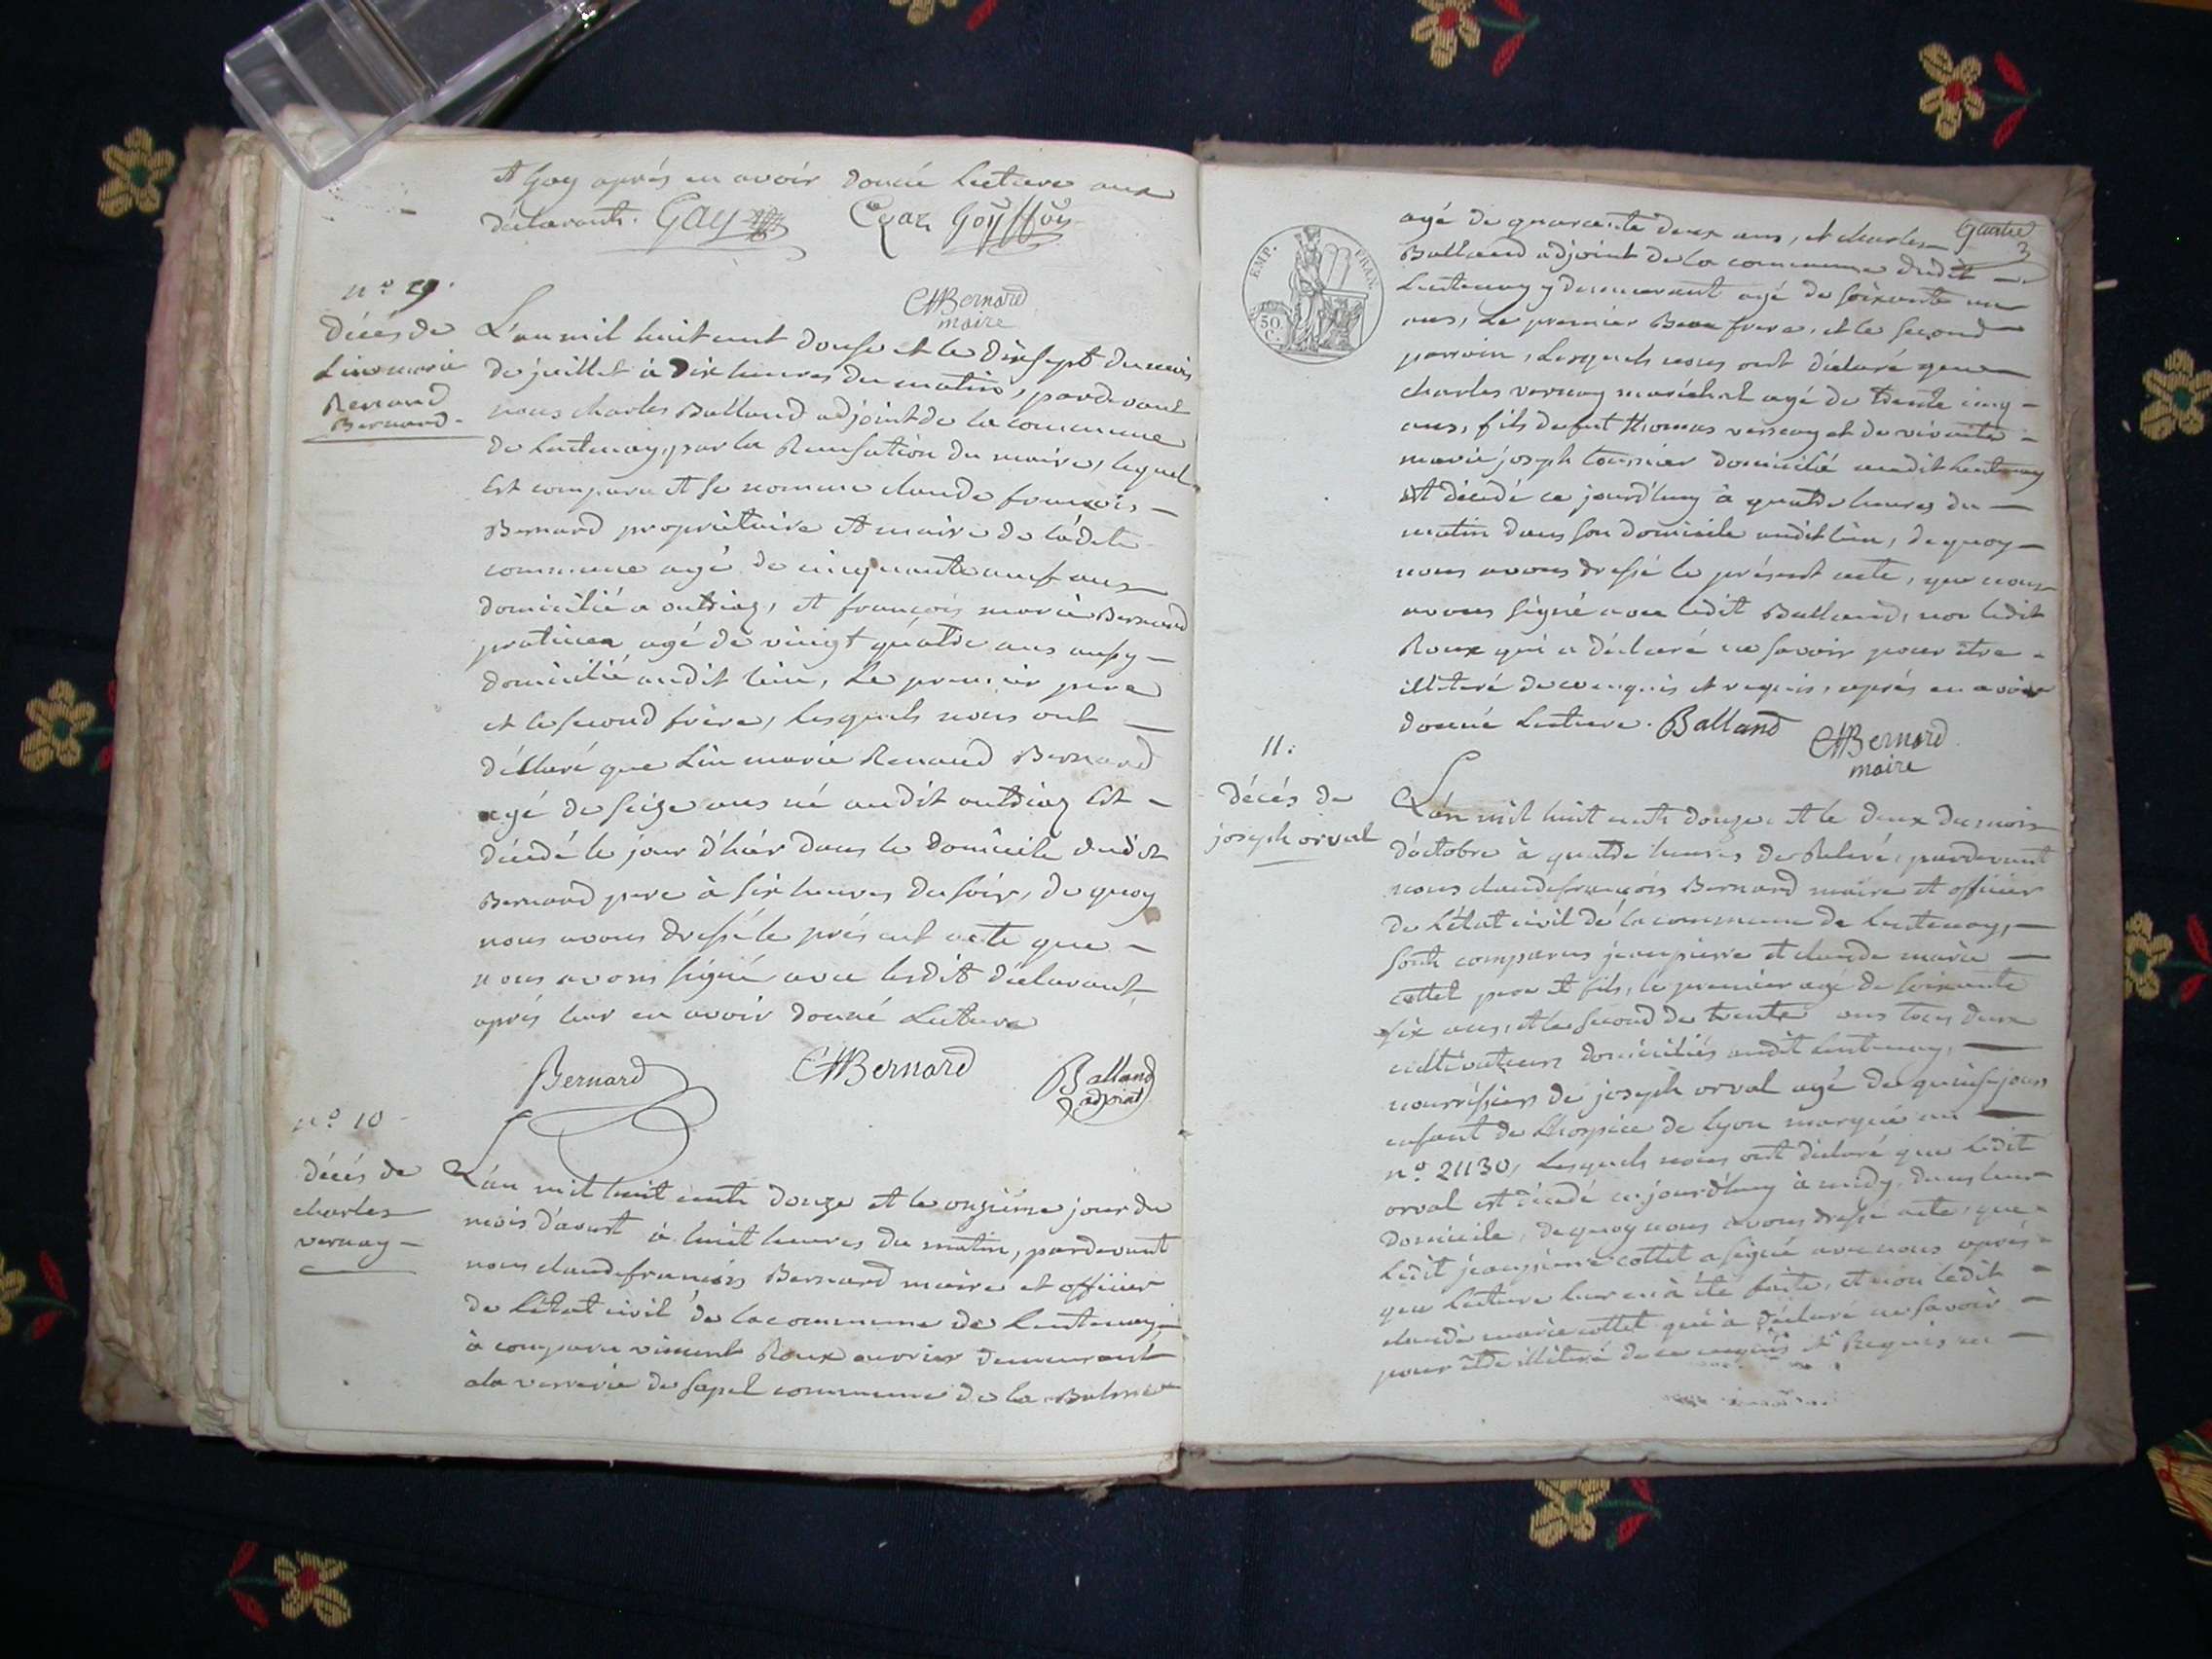 et Gay après en avoir donné Lecture aux
déclarants. Gay Cyaz Goyffon
CFBernard
maire
nº 9.
décés de
Lin marie
Renaud
Bernard -
L'an mil huit cent douse et le dixsept du mois
de juillet à Dix heures du matin, pardevant
nous charles Balland adjoint de la commune
de Lantenay, par la Recusation du maire, lequel
Est comparu et se nomme claude francois -
Bernard propriétaire et maire de ladite
commune agé de cinquante neuf ans
domicilié a outriaz, et françois marie Bernard
praticien agé de vingt quatre ans aussy -
domicilié audit lieu, Le premier pere
et le second frère, lesquels nous ont -
déclaré que Lin marie Renaud Bernard
agé de seize ans né audit outriaz Est -
décédé le jour d'hier dans le domicile dudit
Bernard pere à six heures du soir, de quoy
nous avons dressé le présent acte que -
nous avons signé avec lesdits déclarant
après leur en avoir donné Lecture
Bernard CFBernard Balland
adjoint
nº 10 -
décés de
charles
vernay -
L'an mil huit cents douze et le onzième jour du
mois d'aoust à huit heures du matin, pardevant
nous claude françois Bernard maire et officier
de l'état civil de la commune de Lantenay -
à comparu viment Roux ouvrier demeurant
ala verrerie de sapel commune de la Balme
Gautier
3
EMP. FRAN.
50
C.
agé de quarante deux ans, et charles -
Balland adjoint de la commune dudit -
Lantenay y demeurant agé de soixante un
ans, Le premier Beau frere, et le second
parrain, Lesquels nous ont déclaré que
charles vernay maréchal agé de trente cinq -
ans, fils de fut thomas vernay et de vivante -
marie joseph tournier domicilié audit Lantenay
Est décédé ce jourd'huy à quatre heures du -
matin dans son domicile audit lieu, de quoy -
nous avons dressé le présent acte, que nous
avons signé avec ledit Balland, non ledit
Roux qui a déclaré ne savoir pour être -
illitéré de ce enquis et requis, après en avoir
donné Lecture. Balland CFBernard
maire
11.
décés de
joseph orval
L'an mil huit cents douze et le deux du mois
d'octobre à quatre heures de Relevé, pardevant
nous claude françois Bernard maire et officier
de L'état civil de la commune de Lantenay, -
sont comparus jean pierre et claude marie -
cottet pere et fils, le premier agé de soixante
six ans, et le second de trente ans tous deux
cultivateurs domiciliés audit Lantenay, -
nourrissiers de joseph orval agé de quinse jours
enfant de L'hospice de Lyon marqué au -
nº 21130, Lesquels nous ont déclaré que Ledit
orval est décédé ce jourd'huy à midy, dans leur
domicile, de quoy nous avons dressé acte, que -
Ledit jean pierre cottet a signé avec nous après -
que Lecture leur en à été faite, et non ledit -
claude marie cottet qui à déclaré ne savoir -
pour être illitéré de ce enquis et Requis -